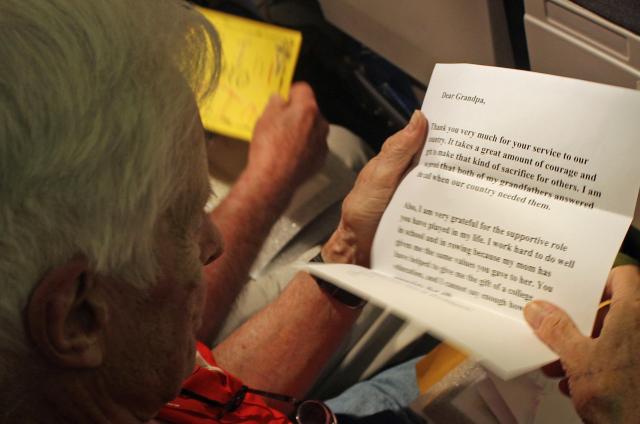 Dear Grandpa,
Thank you very much for your service to our
country. It takes a great amount of courage and
to make that kind of sacrifice for others. I am
proud that both of my grandfathers answered
call when our country needed them.
Also, I am very grateful for the supportive role
you have played in my life. I work hard to do well
in school and in rowing because my mom has
given me the same values you gave to her. You
have helped to give me the gift of a college
education, and I cannot say enough how